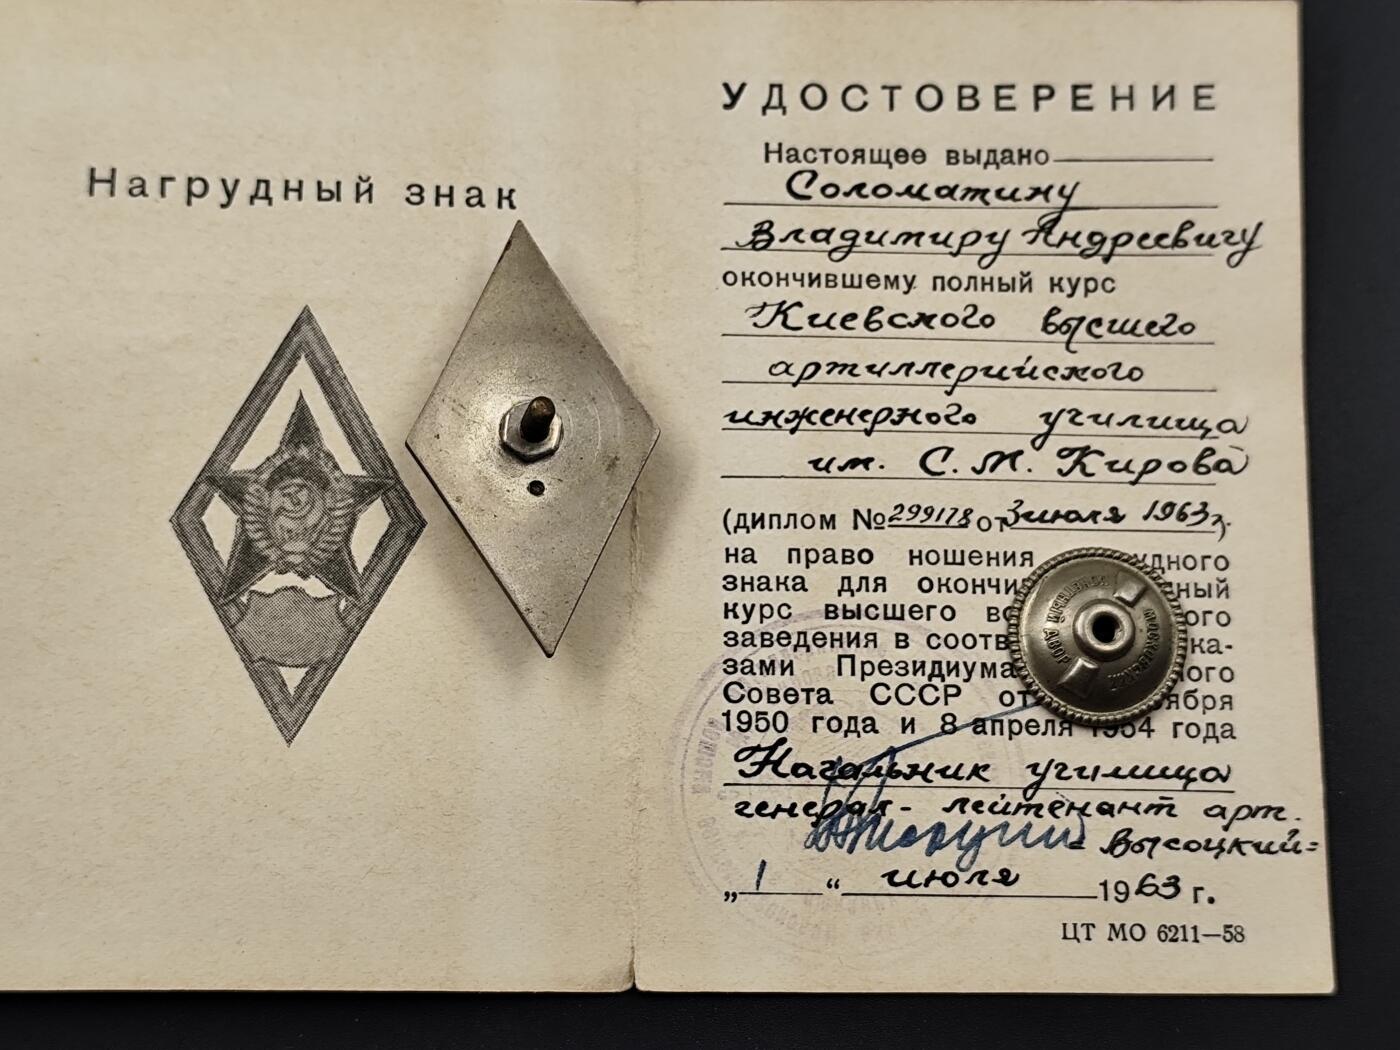 Нагрудный знак
УДОСТОВЕРЕНИЕ
Настоящее выдано
Соломатину
Владимиру Андреевичу
окончившему полный курс
Киевского высшего
артиллерийского
инженерного училища
им. С. М. Кирова
(диплом № 299178 от 3 июля 1963 г.
на право ношения удного
знака для окончи ный
курс высшего во ого
заведения в соотв ка-
зами Президиума ного
Совета СССР от ября
1950 года и 8 апреля 1954 года
Начальник училища
генерал-лейтенант арт.
- Высоцкий=
„ 1 “ июля 1963 г.
ЦТ МО 6211—58
МОСКОВСКИЙ МОНЕТНЫЙ ДВОР